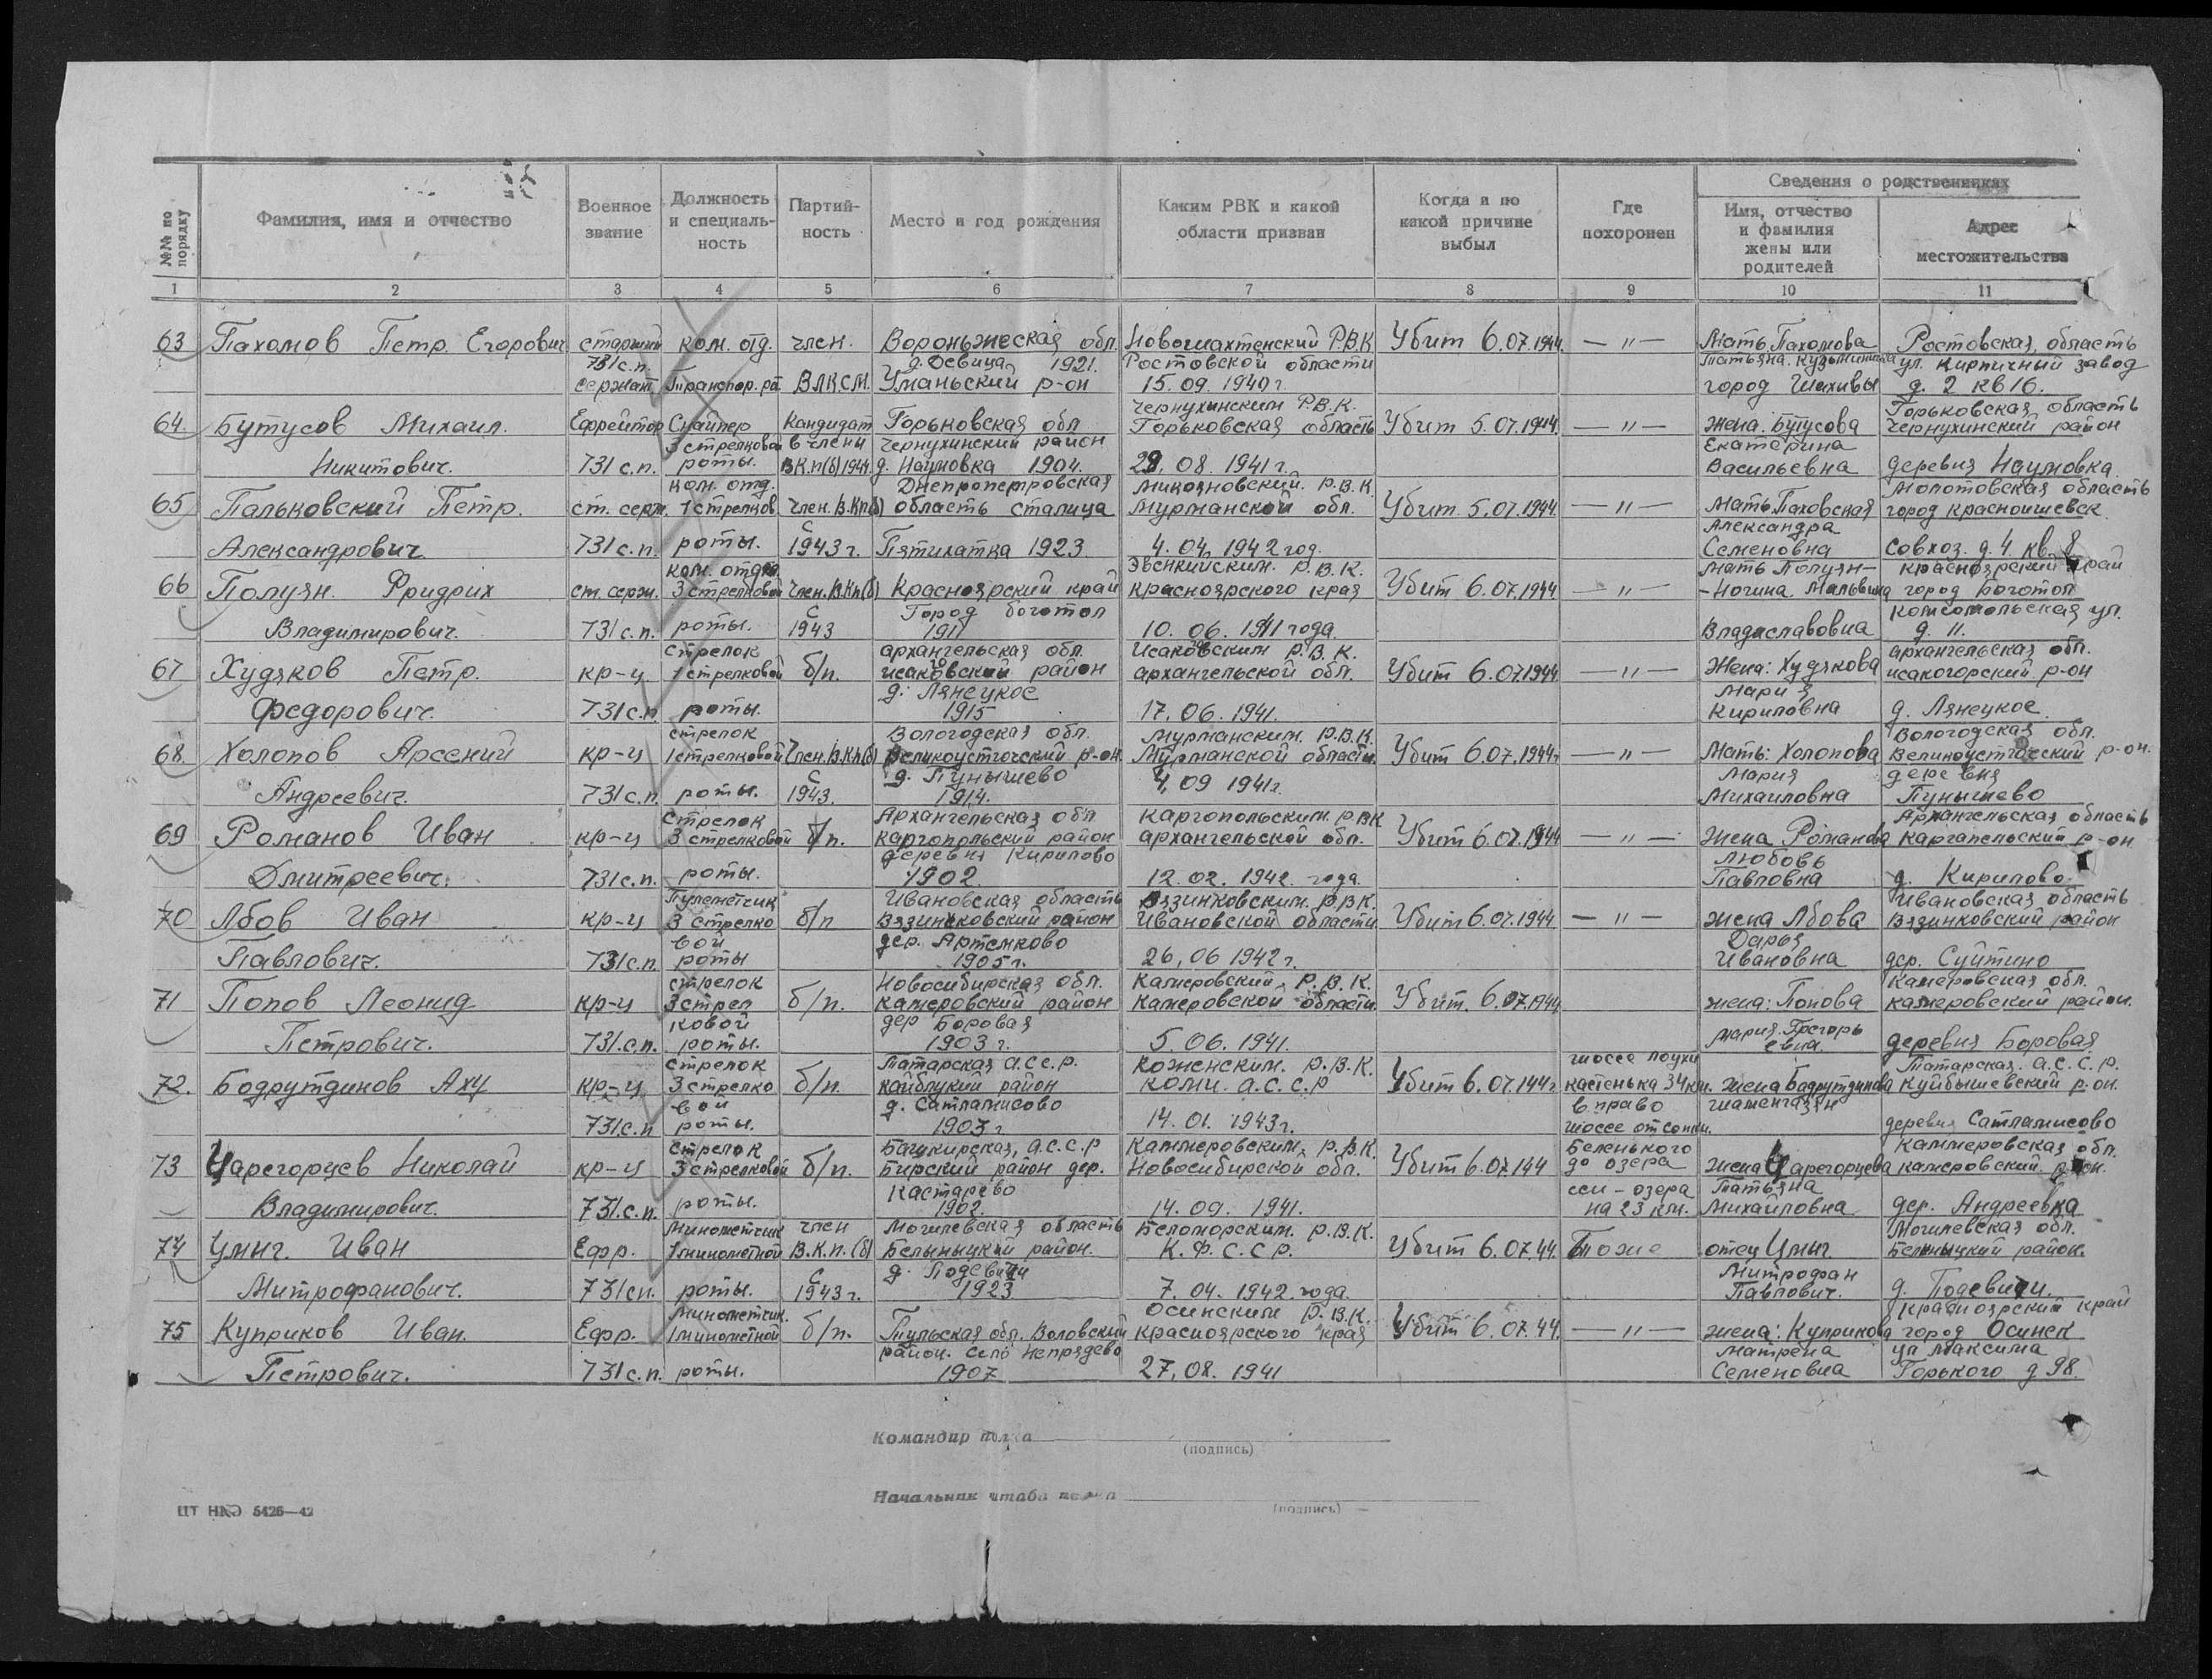 №№ по порядку
Фамилия, имя и отчество
Военное звание
Должность и специальность
Партийность
Место и год рождения
Каким РВК и какой области призван
Когда и по какой причине выбыл
Где похоронен
Сведения о родственниках
Имя, отчество и фамилия жены или родителей
Адрес местожительства
1 2 3 4 5 6 7 8 9 10 11
63 Пахомов Петр Егорович старший ком. отд. член. Вороньжеская обл. Новошахтенский Р.В.К Убит 6.07.1944. — " — Мать Пахомова Ростовская область
731 с.п. д. Девица 1921. Ростовской области Татьяна Кузьминична ул. Кирпичный завод
сержант Транспор. рот ВЛКСМ. Уманьский р-он 15.09.1940г. город Шахивы д. 2 кв 16.
Чернухинским Р.В.К. Горьковская область
64. Бутусов Михаил. Ефрейтор Снайпер Кандидат Горьковская обл Горьковская область Убит 5.07.1944. — " — жена. Бутусова Чернухинский район
3 стрелковой в члены Чернухинский район Екатерина
Никитович. 731 с.п. роты. ВК.п(б) 1944. д. Наумовка 1904. 29.08.1941г. Васильевна деревня Наумовка
ком. отд. Днепропетровская Микояновский. Р.В.К. Молотовская область
65 Пальковский Петр. ст. серж. 1 стрелков. член. В.Кп(б) область сталица Мурманской обл. Убит. 5.07.1944 — " — Мать Паховская город Красновишевск
С Александра
Александрович. 731 с.п. роты. 1943 г. Пятихатка 1923 4.04.1942 год. Семеновна совхоз. д. 4. кв. 8
ком. отд. Эвенкийским. Р.В.К. Мать Полуян- Красноярский край
66 Полуян Фридрих ст. серж. 3 стрелковой Член. В.Кп(б) Красноярский край Красноярского края Убит 6.07.1944 — " — -Ногина. Мальвина город Боготол
С Город боготол Комсомольская ул.
Владимирович. 731 с.п. роты. 1943 1911 10.06.1941 года. Владиславовна д. 11.
Стрелок архангельская обл. Исаковским Р.В.К. архангельская обл.
67 Худяков Петр. кр-ц 1 стрелковой б/п. исаковский район архангельской обл. Убит 6.07.1944 — " — Жена: Худякова исакогорский р-он
д. Лянецкое Мария
Федорович. 731 с.п роты. 1915 17.06.1941. Кириловна д. Лянецкое
стрелок Вологодская обл. Мурманским. Р.В.К. Вологодская обл.
68. Холопов Арсений кр-ц 1 стрелковой Член. В.Кп(б) Великоустюгский р-он. Мурманской области. Убит 6.07.1944г — " — Мать: Холопова Великоустюгский р-он.
С д. Пунышево Мария деревня
Андреевич. 731 с.п. роты. 1943. 1914. 4.09 1941г. Михаиловна Пунышево
Стрелок Архангельская обл Каргопольским. Р.В.К Архангельская область
69 Романов Иван кр-ц 3 стрелковой б/п. Каргопольский район архангельской обл. Убит 6.07.1944 — " — Жена Романова Каргапельский р-он
деревня Кирилово Любовь
Дмитреевич. 731 с.п. роты. 1902. 12.02.1942. года. Павловна д. Кирилово.
Пулеметчик Ивановская область Вязинковским. Р.В.К. Ивановская область
70 Лбов Иван кр-ц 3 стрелко б/п Вязинковский район Ивановской области. Убит 6.07.1944 — " — жена Лбова Вязинковский район
вой дер. Артемково Дарья
Павлович. 731 с.п. роты 1905г. 26,06 1942г. Ивановна дер. Суйтино
стрелок Новосибирская обл. Камеровский. Р.В.К. Камеровская обл.
71 Попов Леонид кр-ц 3 стрел б/п. камеровский район Камеровской области. Убит. 6.07.1944 жена: Попова камеровский район.
ковой дер Боровая Мария Грегорь
Петрович. 731.с.п. роты. 1903г. 5.06.1941. евна. деревня Боровая
Стрелок Татарская а.с.с.р. Коженским. Р.В.К. шоссе лоухи Татарская. а.С.С.р.
72. Бодрутдинов Аху кр-ц 3 стрелко б/п. кайбицкий район коми. а.с.с.р Убит 6.07.144г. кастенька 34 км. жена Бадрутдинова Куйбышевский р-он.
вой д. Сатламисово вправо
731 с.п роты. 1903г 14.01.1943г. шоссе деревня Сатламисово
Стрелок Башкирская, а.с.с.р Каммеровским, Р.В.К. Беленького Каммеровская обл.
73 Царегорцев Николай кр-ц 3 стрелковой б/п. Бирский район дер. Новосибирской обл. Убит 6.07.144 до озера жена Царегорцева камеровский. р-он.
Кастарево сси-озера Татьяна
Владимирович. 731.с.п. роты. 1902. 14.09.1941. на 23 км. Михайловна дер. Андреевка
Минометчик член Могилевская область Беломорским. Р.В.К. Могилевская обл.
74 Уминг. Иван Ефр. 1 минометной В.К.п. (б) Белыницкий район. К.Ф.С.С.Р. Убит 6.07.44. Тоже отец Белыницкий район.
С д. Подевичи Митрофан
Митрофанович. 731 сп. роты. 1943г. 1923 7.04.1942 года. Павлович. д. Подевичи.
Минометчик. Осинским Р.В.К. Красноярский край
75 Куприков Иван. Ефр. 1 минометной б/п. Тульская обл. Воловский красноярского края Убит 6.07.44. — " — жена: Куприкова город Осинск
район. село Непрядево Матрена ул Максима
Петрович. 731 с.п. роты. 1907 27.08.1941 Семеновна Горького д 98.
Командир полка
(подпись)
Начальник штаба полка
(подпись)
ЦТ НКО 5426—42